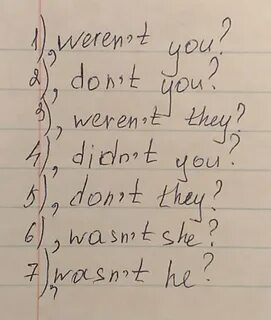 1), weren't you?
2), don't you?
3), weren't they?
4), didn't you?
5), don't they?
6), wasn't she?
7), wasn't he?